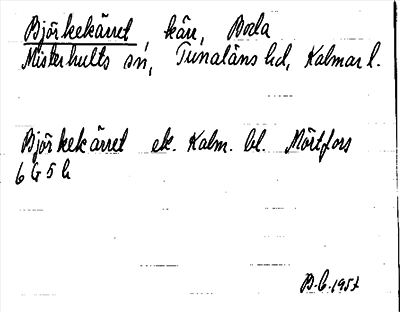 Björkekärret, kärr, Boda
Misterhults sn, Tunaläns hd, Kalmar l.
Björkekärret ek. Kalm. bl. Mörtfors
6 G 5 h
B.C. 1957